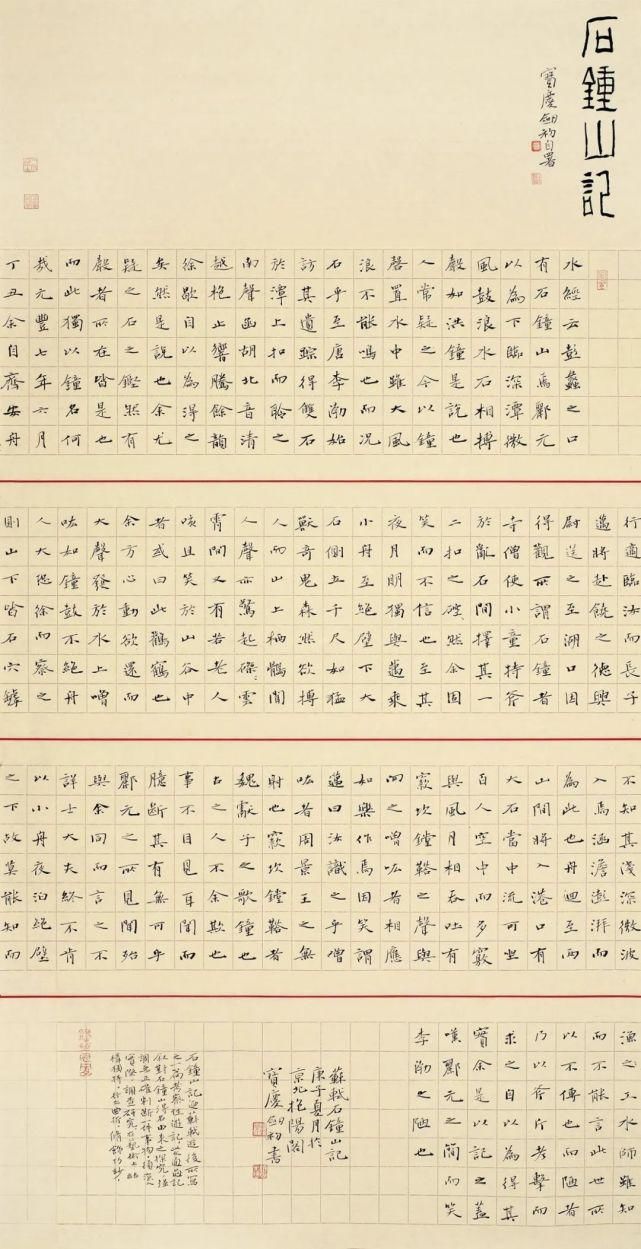 石鍾山記
寶慶初自署
水經云彭蠡之口
有石鐘山焉酈元
以為下臨深潭微
風鼓浪水石相搏
聲如洪鐘是說也
人常疑之今以鐘
磬置水中雖大風
浪不能鳴也而況
石乎至唐李渤始
訪其遺踪得雙石
於潭上扣而聆之
南聲函胡北音清
越枹止響騰餘韻
徐歇自以為得之
矣然是說也余尤
疑之石之鏗然有
聲者所在皆是也
而此獨以鐘名何
哉元豐七年六月
丁丑余自齊安舟
行適臨汝而長子
邁將赴饒之德興
尉送之至湖口因
得觀所謂石鐘者
寺僧使小童持斧
於亂石間擇其一
二扣之硿然余固
笑而不信也至其
夜月明獨與邁乘
小舟至絕壁下大
石側立千尺如猛
獸奇鬼森然欲搏
人而山上栖鶻聞
人聲亦驚起磔〻雲
霄間又有若老人
咳且笑於山谷中
者或曰此鸛鶴也
余方心動欲還而
大聲發於水上噌
吰如鐘鼓不絕舟
人大恐徐而察之
則山下皆石穴罅
不知其淺深微波
入焉涵澹澎湃而
為此也舟迴至兩
山間將入港口有
大石當中流可坐
百人空中而多竅
與風月相吞吐有
竅坎鏜鞳之聲與
向之噌吰者相應
如樂作焉因笑謂
邁曰汝識之乎噌
吰者周景王之無
射也竅坎鏜鞳者
魏獻子之歌鐘也
古之人不余欺也
事不目見耳聞而
臆斷其有無可乎
酈元之所見聞殆
與余同而言之不
詳士大夫終不肯
以小舟夜泊絕壁
之下故莫能知而
漁之工水師雖知
而不能言此世所
以不傳也而陋者
乃以斧斤者擊而
求之自以為得其
實余是以記之蓋
嘆酈元之簡而笑
李渤之陋也
蘇軾石鐘山記
庚子夏月於
京北抱陽閣
寶慶初書
石鐘山記迺蘇軾遊後所寫
之一篇考察性遊記